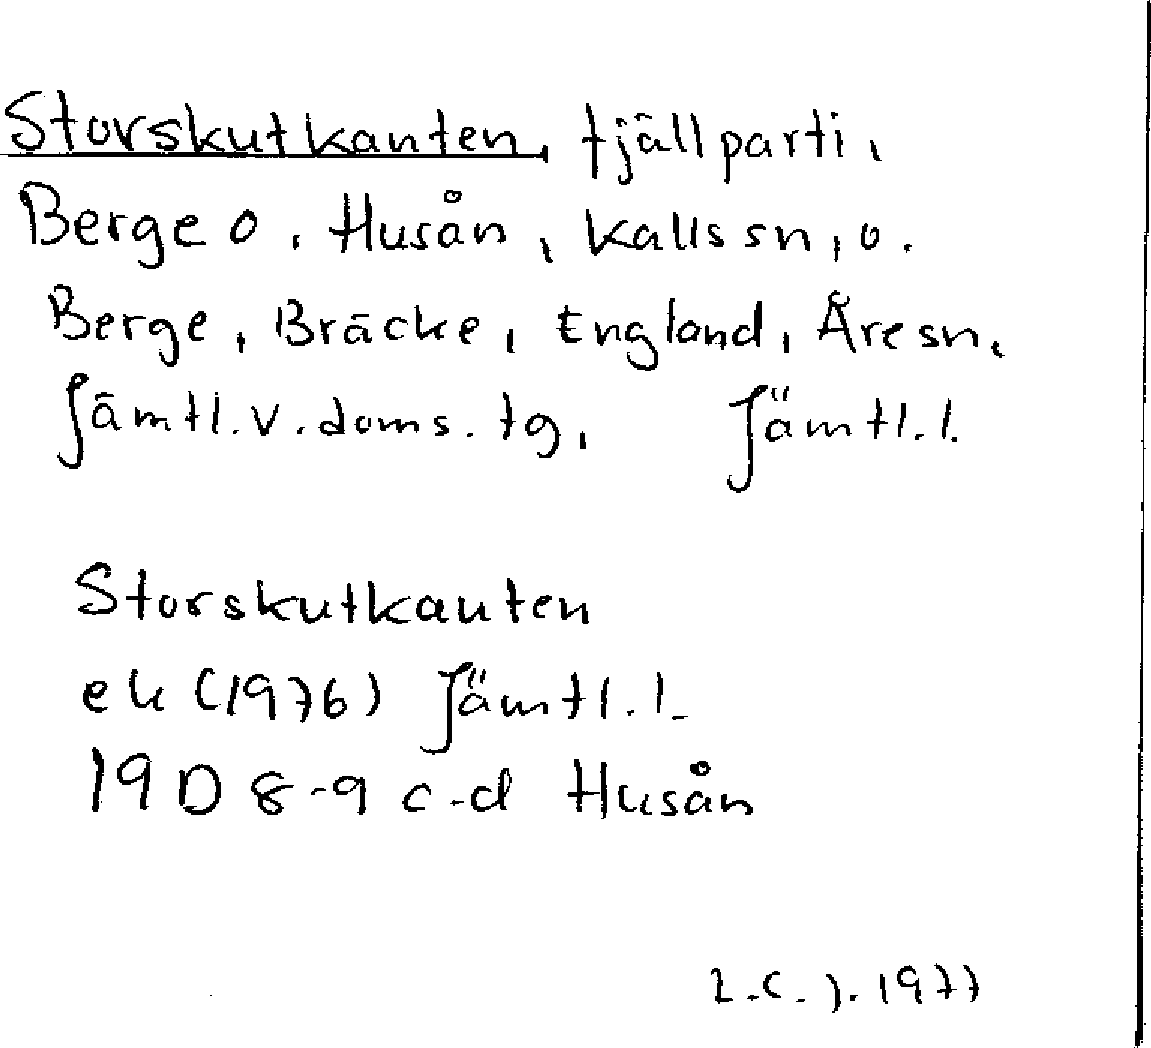 Storskutkanten, fjällparti,
Berge o. Husån, Kalls sn, o.
Berge, Bräcke, England, Åre sn,
Jämtl. v. doms. tg, Jämtl. l.
Storskutkanten
ek (1976) Jämtl. l.
19 D 8-9 c-d Husån
1977